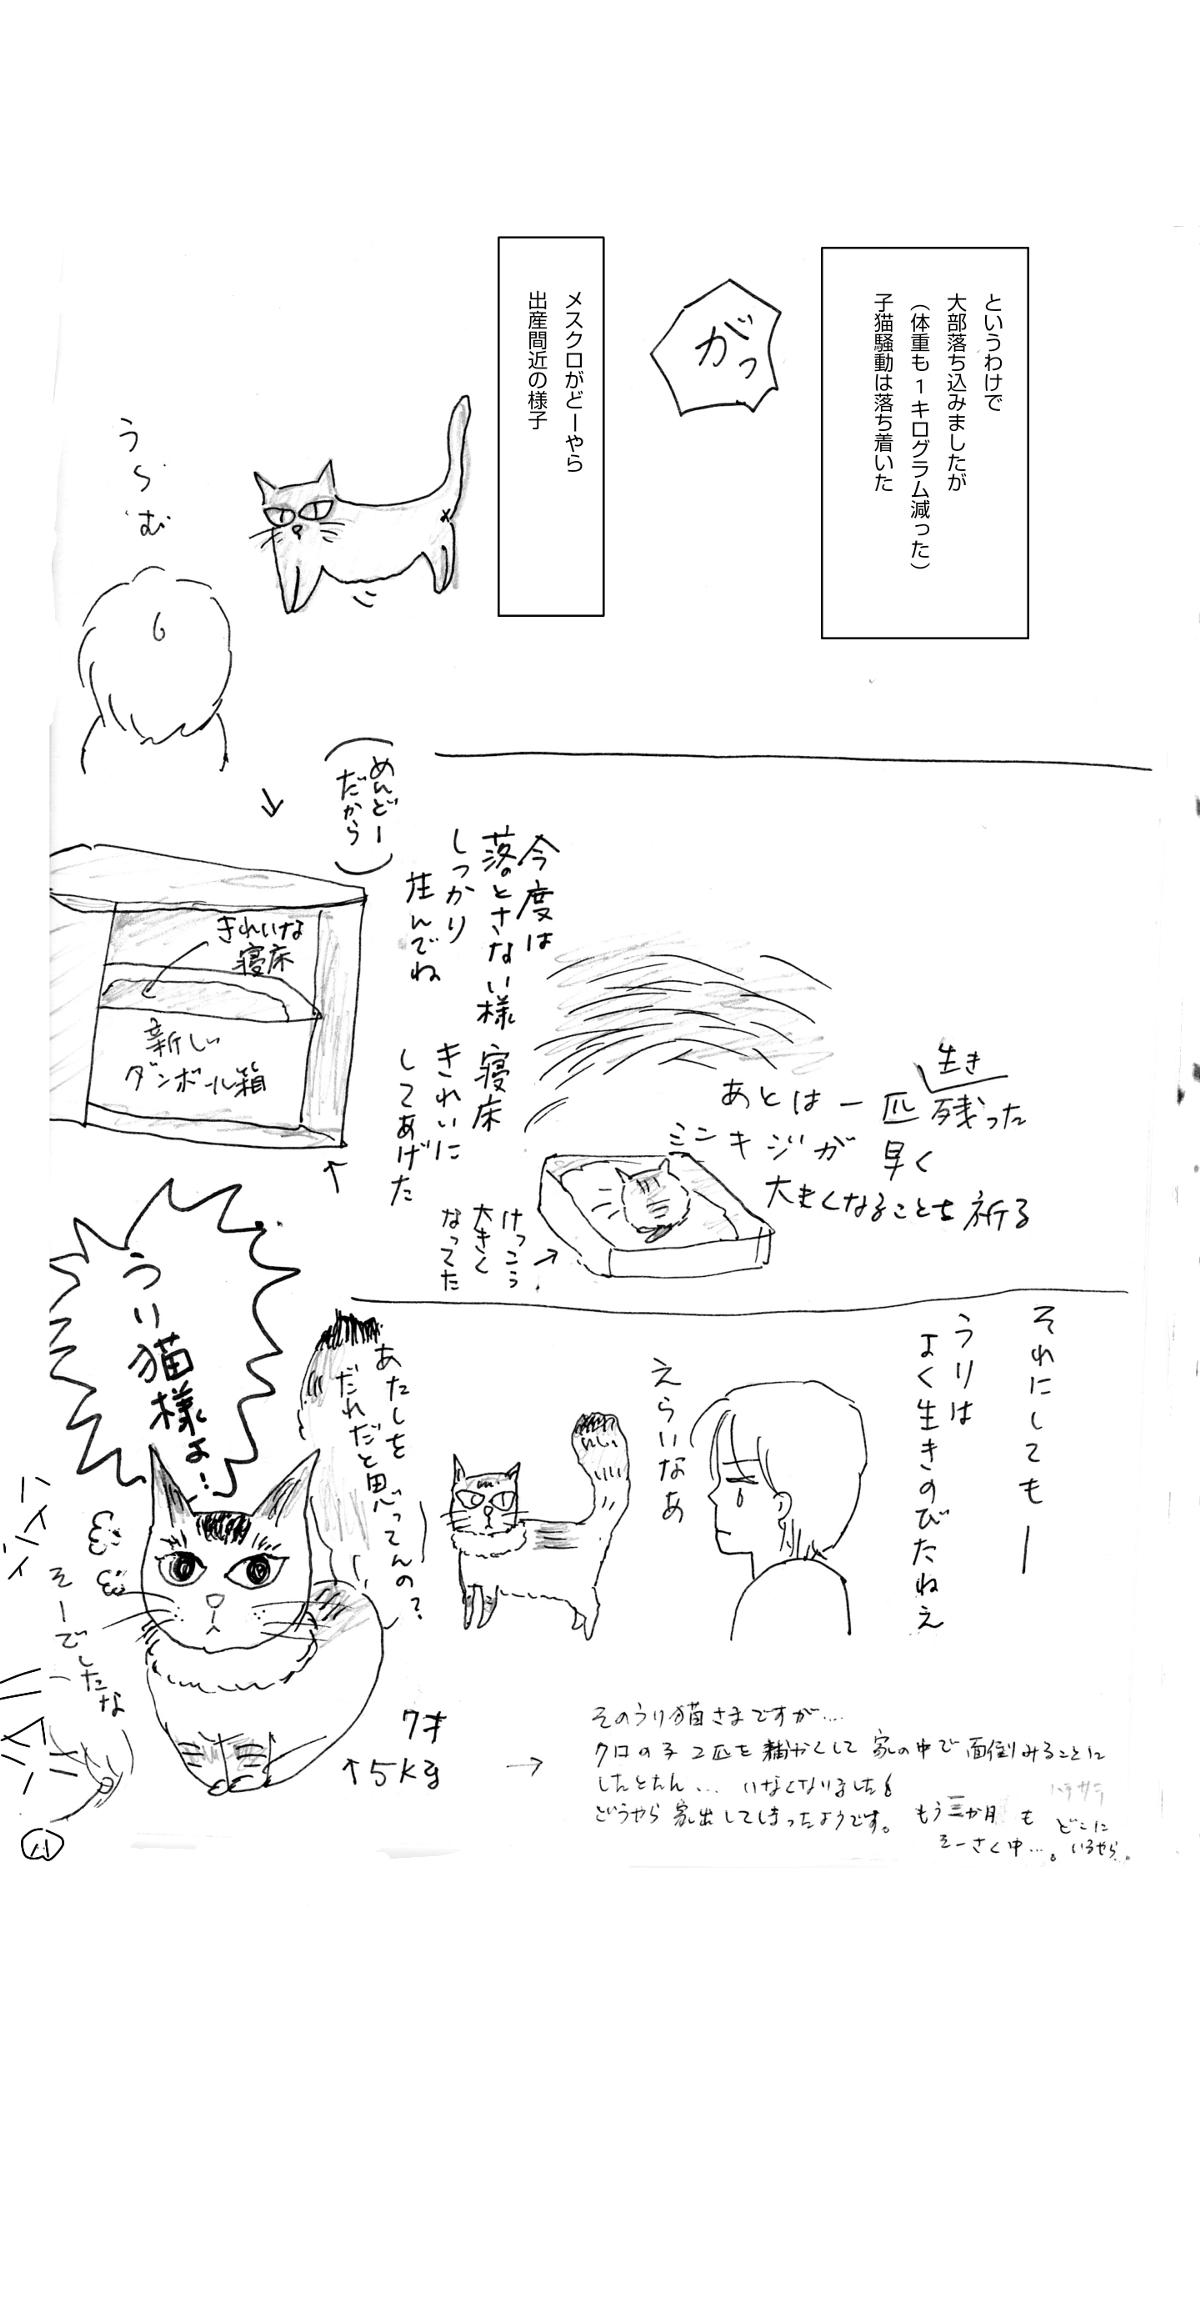 というわけで
大部落ち込みましたが
（体重も1キログラム減った）
子猫騒動は落ち着いた
がっ
メスクロがどーやら
出産間近の様子
う〜む
あとは一匹生き残った
ミンキジが早く
大きくなることを祈る
けっこう
大きく
なってた
今度は
落とさない様
しっかり
産んでね
寝床
きれいに
してあげた
（めんどー
だから）
きれいな
寝床
新しい
ダンボール箱
それにしてもー
うりは
よく生きのびたねえ
えらいなあ
あたしを
だれだと思ってんの？
うり猫様よ…
ハイハイ
そーでしたな
7才
5kg
そのうり猫さまですが…
クロの子2匹を 家の中で面倒みることに
したとたん… いなくなりました
どうやら家出してしまったようです。 もう三か月も
そーさく中…。
どこに
いるやら。